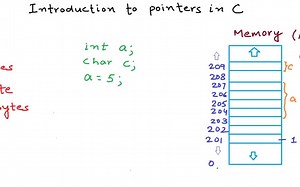 Introduction to pointers in C
Memory
int a;
char c;
a = 5;
209
208
207
206
205
204
203
202
201
0
c
a
1